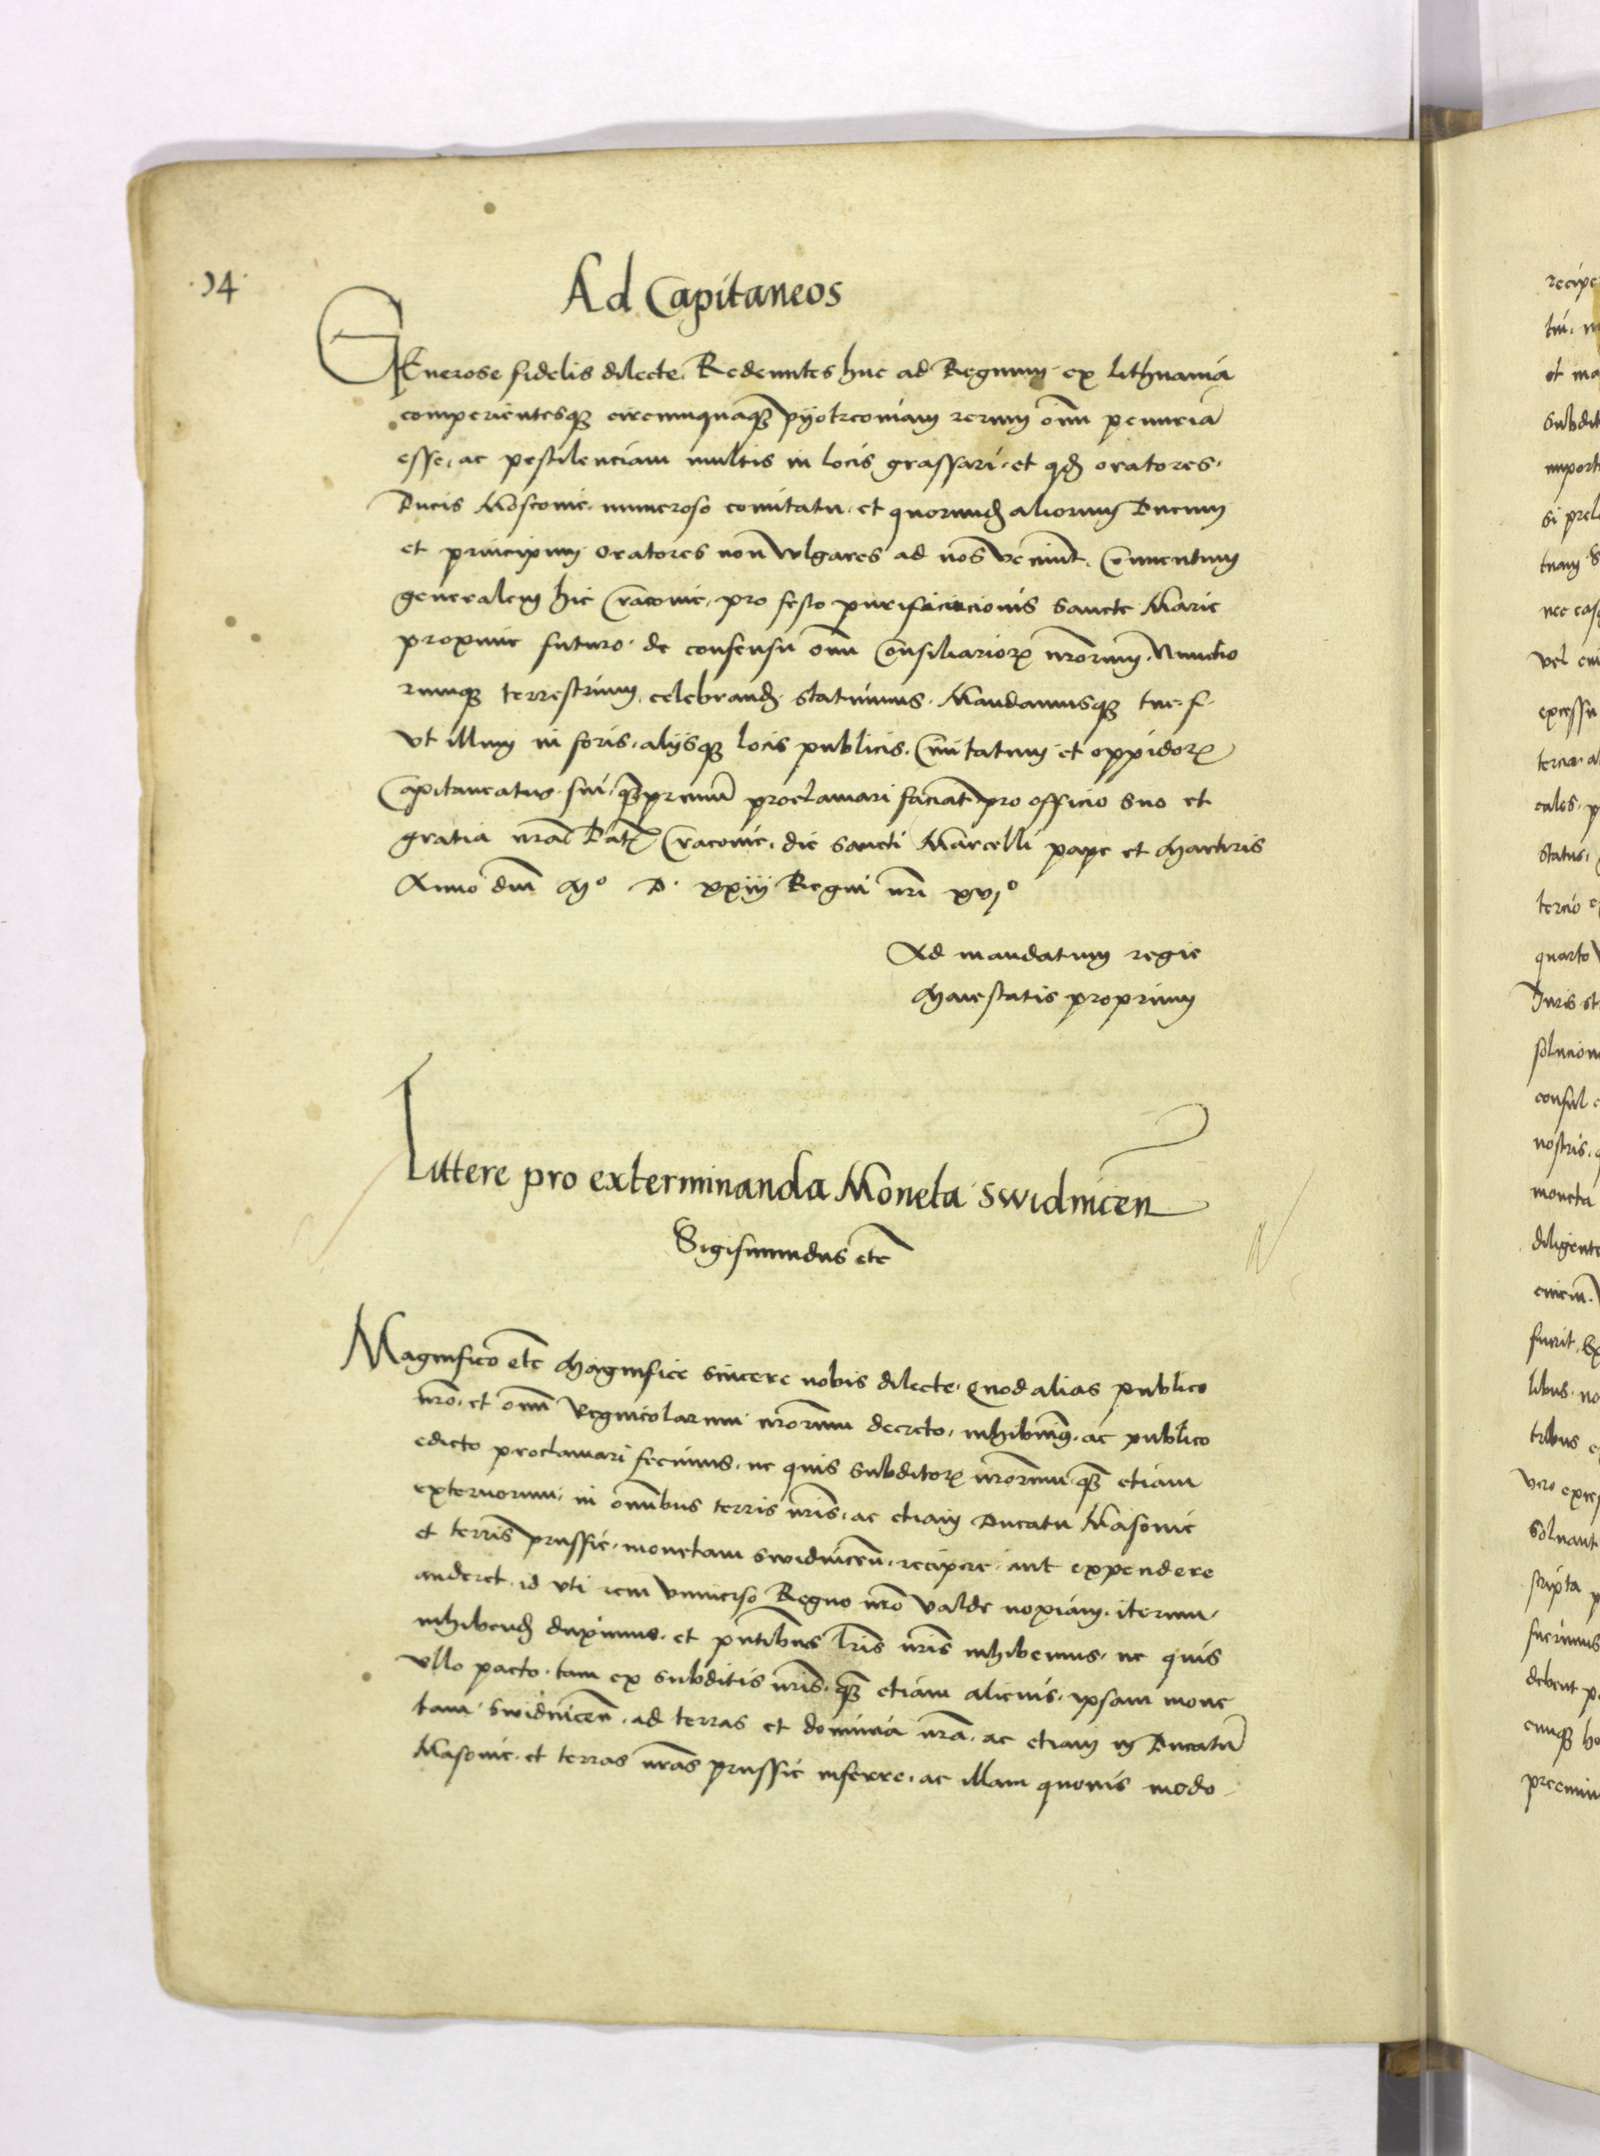 ·74·
Ad Capitaneos
GEnerose fidelis dilecte. Redeuntes huc ad Regnum ex Lithuania
comperientesq circumquaq pyotrcoviam rerum oīm penuriā
esse, ac pestilenciam multis in locis grassari, et qd oratores,
Ducis Moscovie, numeroso comitatu, et quorumd aliorum Ducum
et principum oratores non vulgares ad nos veniunt. Conventum
generalem hic Cracovie, pro festo purificacionis Sancte Marie
proxime futuro, de consensu oīm Consiliariorꝝ nrorum, Nuncio
rumq terrestrium, celebrand statuimus. Mandamusq tue f.
Vt illum in foris, aliisq locis publicis, Civitatum et oppidorꝝ
Capitaneatus sui, proclamari faciat, pro officio suo et
gratia nrā Datꝝ Cracovie, die Sancti Marcelli pape et Martiris
Anno dni Mo D. xxiij Regni nri xvjo
Ad mandatum regie
Maiestatis proprium
Littere pro exterminanda Moneta Swidnicen
Sigismundus etc
Magnifico etc Magnifice sincere nobis dilecte. Quod alias publico
nro, et oīm Regnicolarum nrorum decreto, inhibuimus, ac publico
edicto proclamari fecimus, ne quis subditorꝝ nrorum, q etiam
externorum, in omnibus terris nris, ac etiam Ducatu Masovie
et terris prussie, monetam Swidnicen, recipere aut expendere
auderet, id vti rem Vniverso Regno nro valde noxiam, iterum,
inhibend duximus, et pntibus lris nris inhibemus, ne quis
vllo pacto, tam ex subditis nris, q etiam alienis, ipsam mone
tam Swidnicen, ad terras et dominia nra, ac etiam in Ducatū
Masovie, et terras nras prussie inferre, ac illam quovis modo